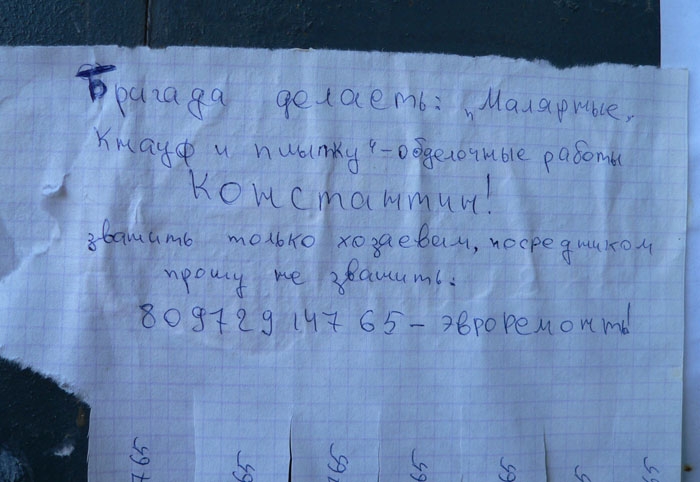 Бригада делаеть: „Малярные,
Кнауф и плытку“-обделочные работы
Константин!
званить только хозаевам, посредником
прошу не званить.
80972914765- эвроремонть!